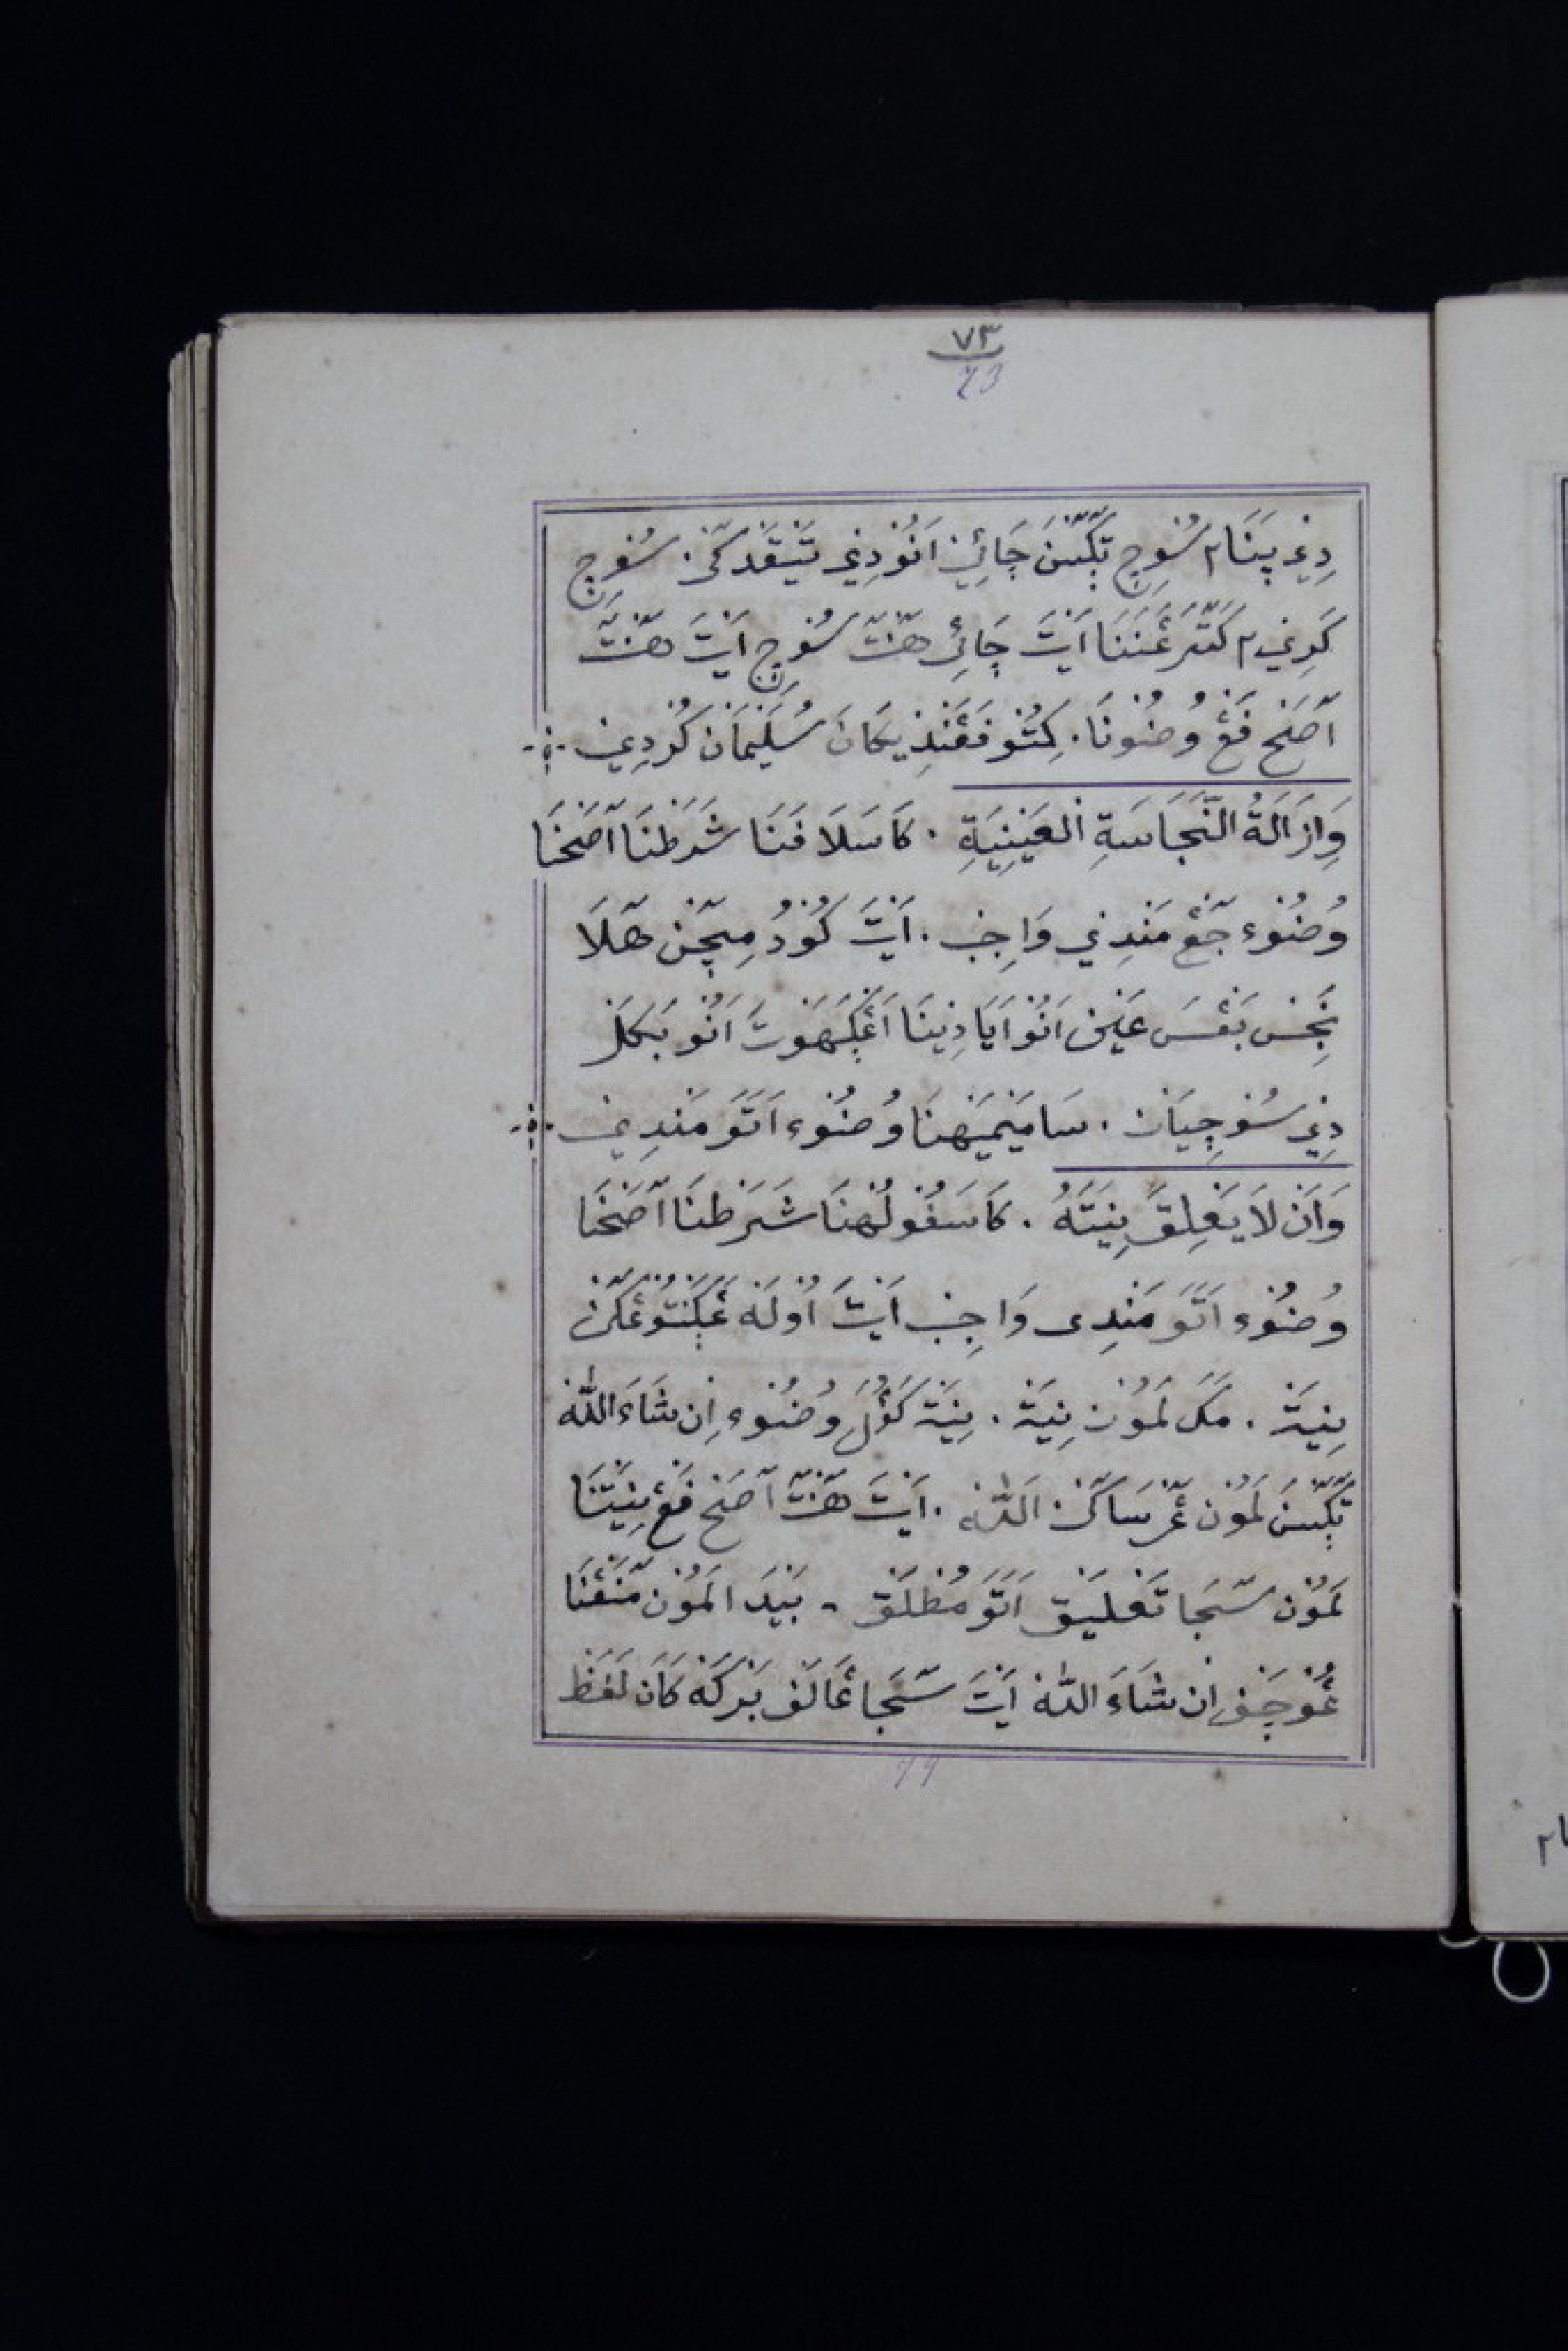 ٧٣
73
دِيْ بٖنَا٢ سُوچِ تٓكٓسَنَ چَائِيْ اَنُوْ دِيْ تَيْقَدْ كَنْ. سُوچِ
كَدِيْ ٢ كَتّرَغَنَنَا اَيْتَ چَائِ هَنْتَ سُوچِ اَيْتَ هَنْتَ
آصَحْ فَڠْ وُضُوْنَا. كِتُوْ فَڠَنْدِيْكَانَ سُلَيْمَانْ كُرْدِيْ
وَاِزَالَةُ النَّجَاسَةِ الْعَيْنِيَةِ . كَاسَلَافَنَا شَرَطْنَا آصَحْنَا
وُضُوْء جَڠْ مَنْدِيْ وَاجِبْ . اَيْتَ كُوْدُ مِيچٓنْ هَلَا
نَجِسْ بَڠْسَ عَيْنْ اَنُوْ اَيَا دِيْنَا اَڠْڮَهَوْتَ اَنُوْ بَكَلْ
دِيْ سُوْچِيَانْ . سَامَيْمَيْهنَا وُضُوْء اَتَوَ مَنْدِيْ
وَاَنْ لَا يَعْلِقَ نِيَّتَهُ . كَاسَڤُوْلُهْنَا شَرَطْنَا آصَحْنَا
وُضُوْء اَتَوَ مَنْدِى وَاجِبْ اَيْتَ اُوْلَهْ ڠَڮَنْتُوْڠَكَنْ
نِيَّةْ . مَكَ لَمُوْنْ نِيَّةْ . نِيَّةْ كَوُلَ وُضُوْء اِنْ شَاءَ اللهْ
تٓكٓسَنَ لَمُوْنْ ڠٓرْسَاكَنْ اَللهْ . اَيْتَ هَنْتَ آصَحْ فَڠْ نِيَّتْنَا
لَمُوْنْ سٓجَا تَعْلِيْقْ اَتَوَ مُطْلَقْ - بَيْدَا لَمُوْنْ مَنَڠْنَا
ڠُوْچَفْ اِنْ شَاءَ اللهْ اَيْتَ سٓجَا ڠَالَفْ بَرْكَهْ كَانَ لَفَظْ
74